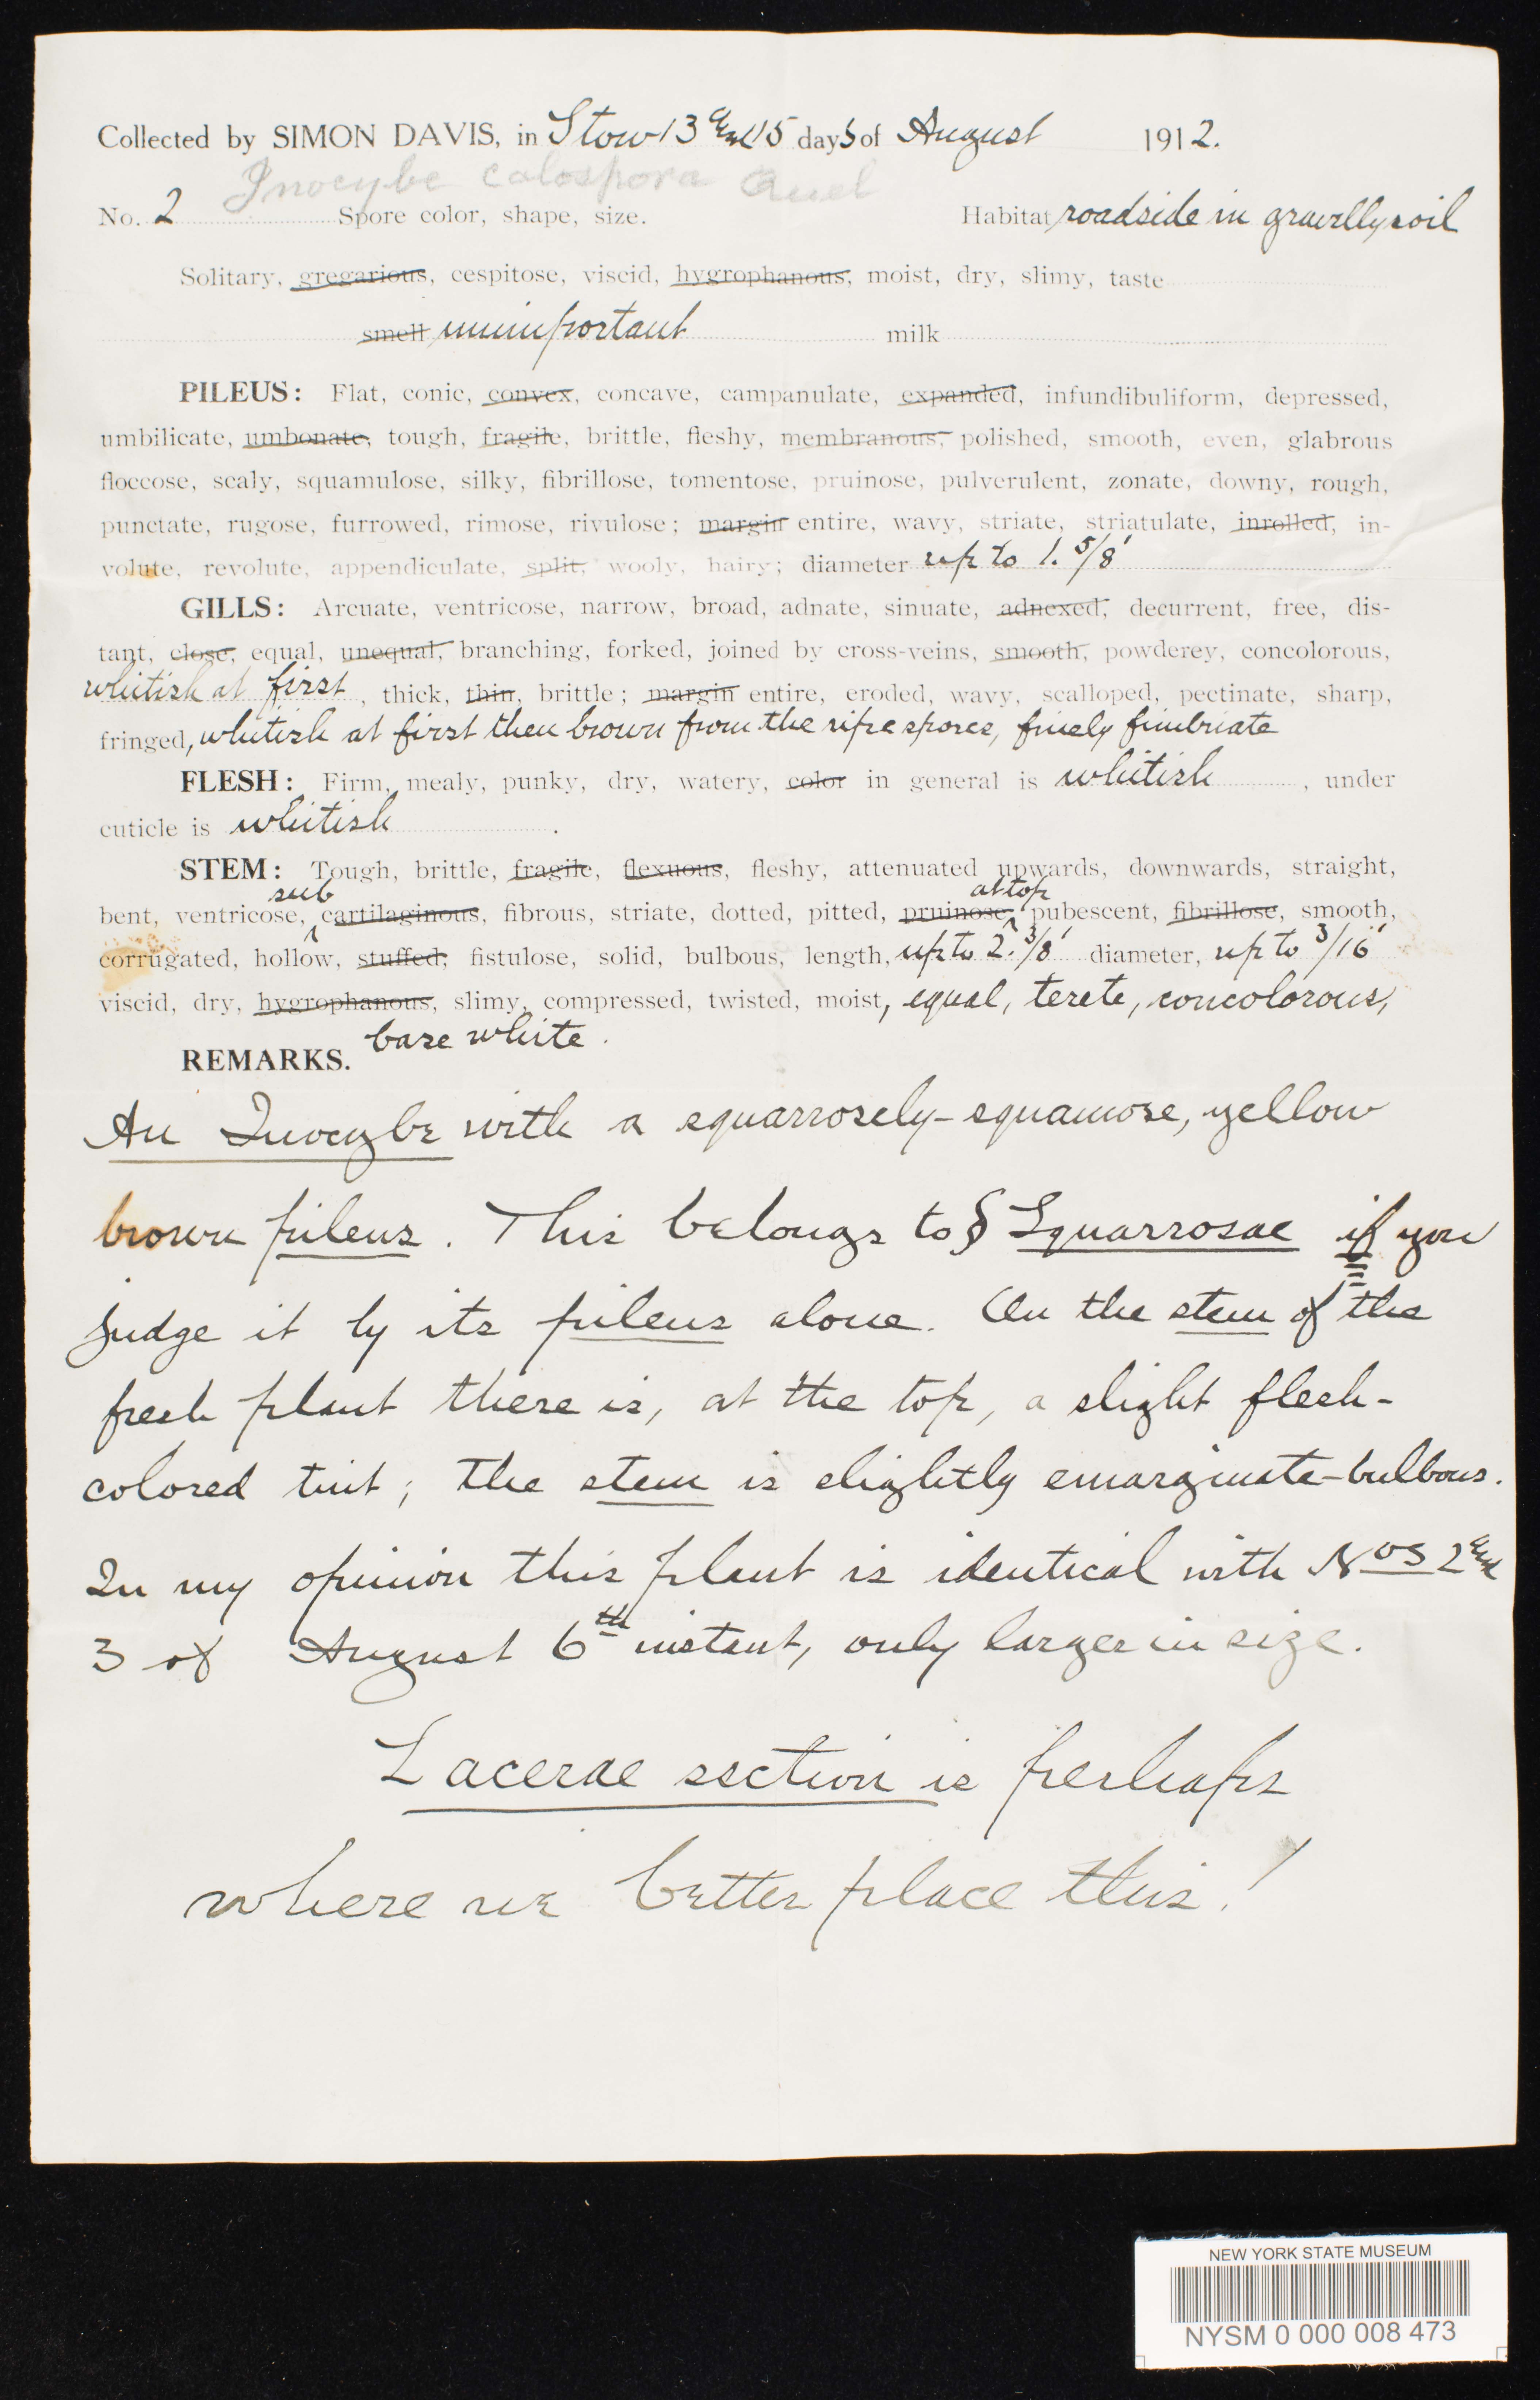 Collected by SIMON DAVIS, in Stow 13 and 15 days of August 1912.
Inocybe calospora Quel
No. 2 Spore color, shape, size. Habitat roadside in gravelly soil
Solitary, gregarious, cespitose, viscid, hygrophanous, moist, dry, slimy, taste
smell unimportant milk
PILEUS: Flat, conic, convex, concave, campanulate, expanded, infundibuliform, depressed,
umbilicate, umbonate, tough, fragile, brittle, fleshy, membranous, polished, smooth, even, glabrous
floccose, scaly, squamulose, silky, fibrillose, tomentose, pruinose, pulverulent, zonate, downy, rough,
punctate, rugose, furrowed, rimose, rivulose; margin entire, wavy, striate, striatulate, inrolled, in-
volute, revolute, appendiculate, split, wooly, hairy; diameter up to 1. 5/8'
GILLS: Arcuate, ventricose, narrow, broad, adnate, sinuate, adnexed, decurrent, free, dis-
tant, close, equal, unequal, branching, forked, joined by cross-veins, smooth, powderey, concolorous,
whitish at first, thick, thin, brittle; margin entire, eroded, wavy, scalloped, pectinate, sharp,
fringed, whitish at first then brown from the ripe spores, finely fimbriate
FLESH: Firm, mealy, punky, dry, watery, color in general is whitish, under
cuticle is whitish.
STEM: Tough, brittle, fragile, flexuous, fleshy, attenuated upwards, downwards, straight,
sub at top
bent, ventricose, cartilaginous, fibrous, striate, dotted, pitted, pruinose, pubescent, fibrillose, smooth,
corrugated, hollow, stuffed, fistulose, solid, bulbous, length, up to 2. 3/8' diameter, up to 3/16'
viscid, dry, hygrophanous, slimy, compressed, twisted, moist, equal, terete, concolorous,
REMARKS. base white.
An Inocybe with a squarrosely-squamose, yellow
brown pileus. This belongs to § Squarrosae if you
judge it by its pileus alone. On the stem of the
fresh plant there is, at the top, a slight flesh-
colored tint; the stem is slightly emarginate-bulbous.
In my opinion this plant is identical with Nos 2 and
3 of August 6th instant, only larger in size.
Lacerae section is perhaps
where we better place this!
NEW YORK STATE MUSEUM
NYSM 0 000 008 473